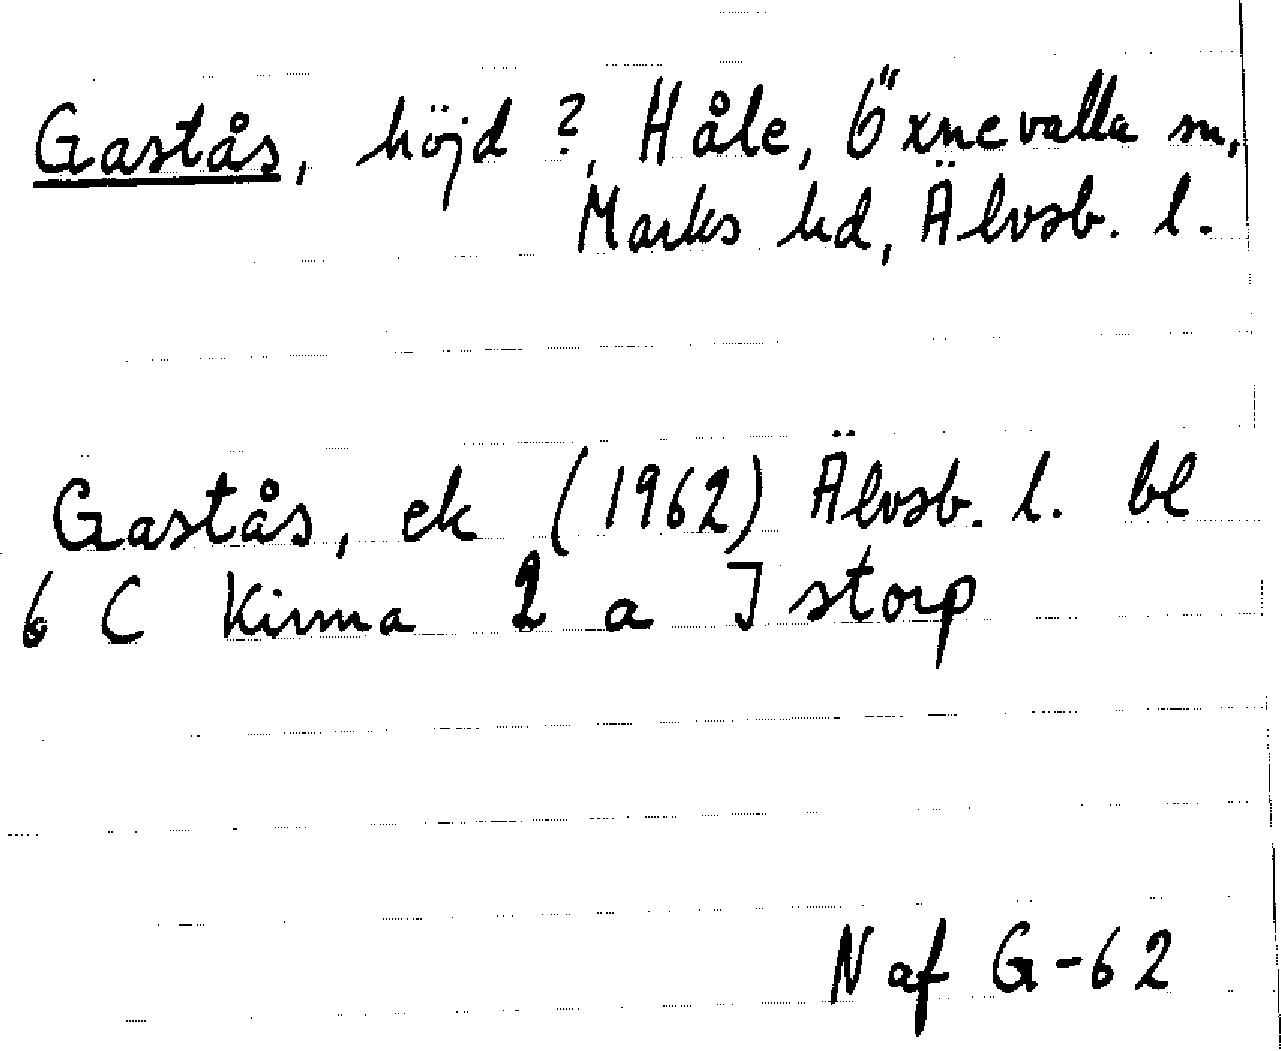 Gastås, höjd ?, Håle, Öxnevalla sn,
Marks hd, Älvsb. l.
Gastås, ek (1962) Älvsb. l. bl
6 C Kinna 2 a Istorp
Naf G-62